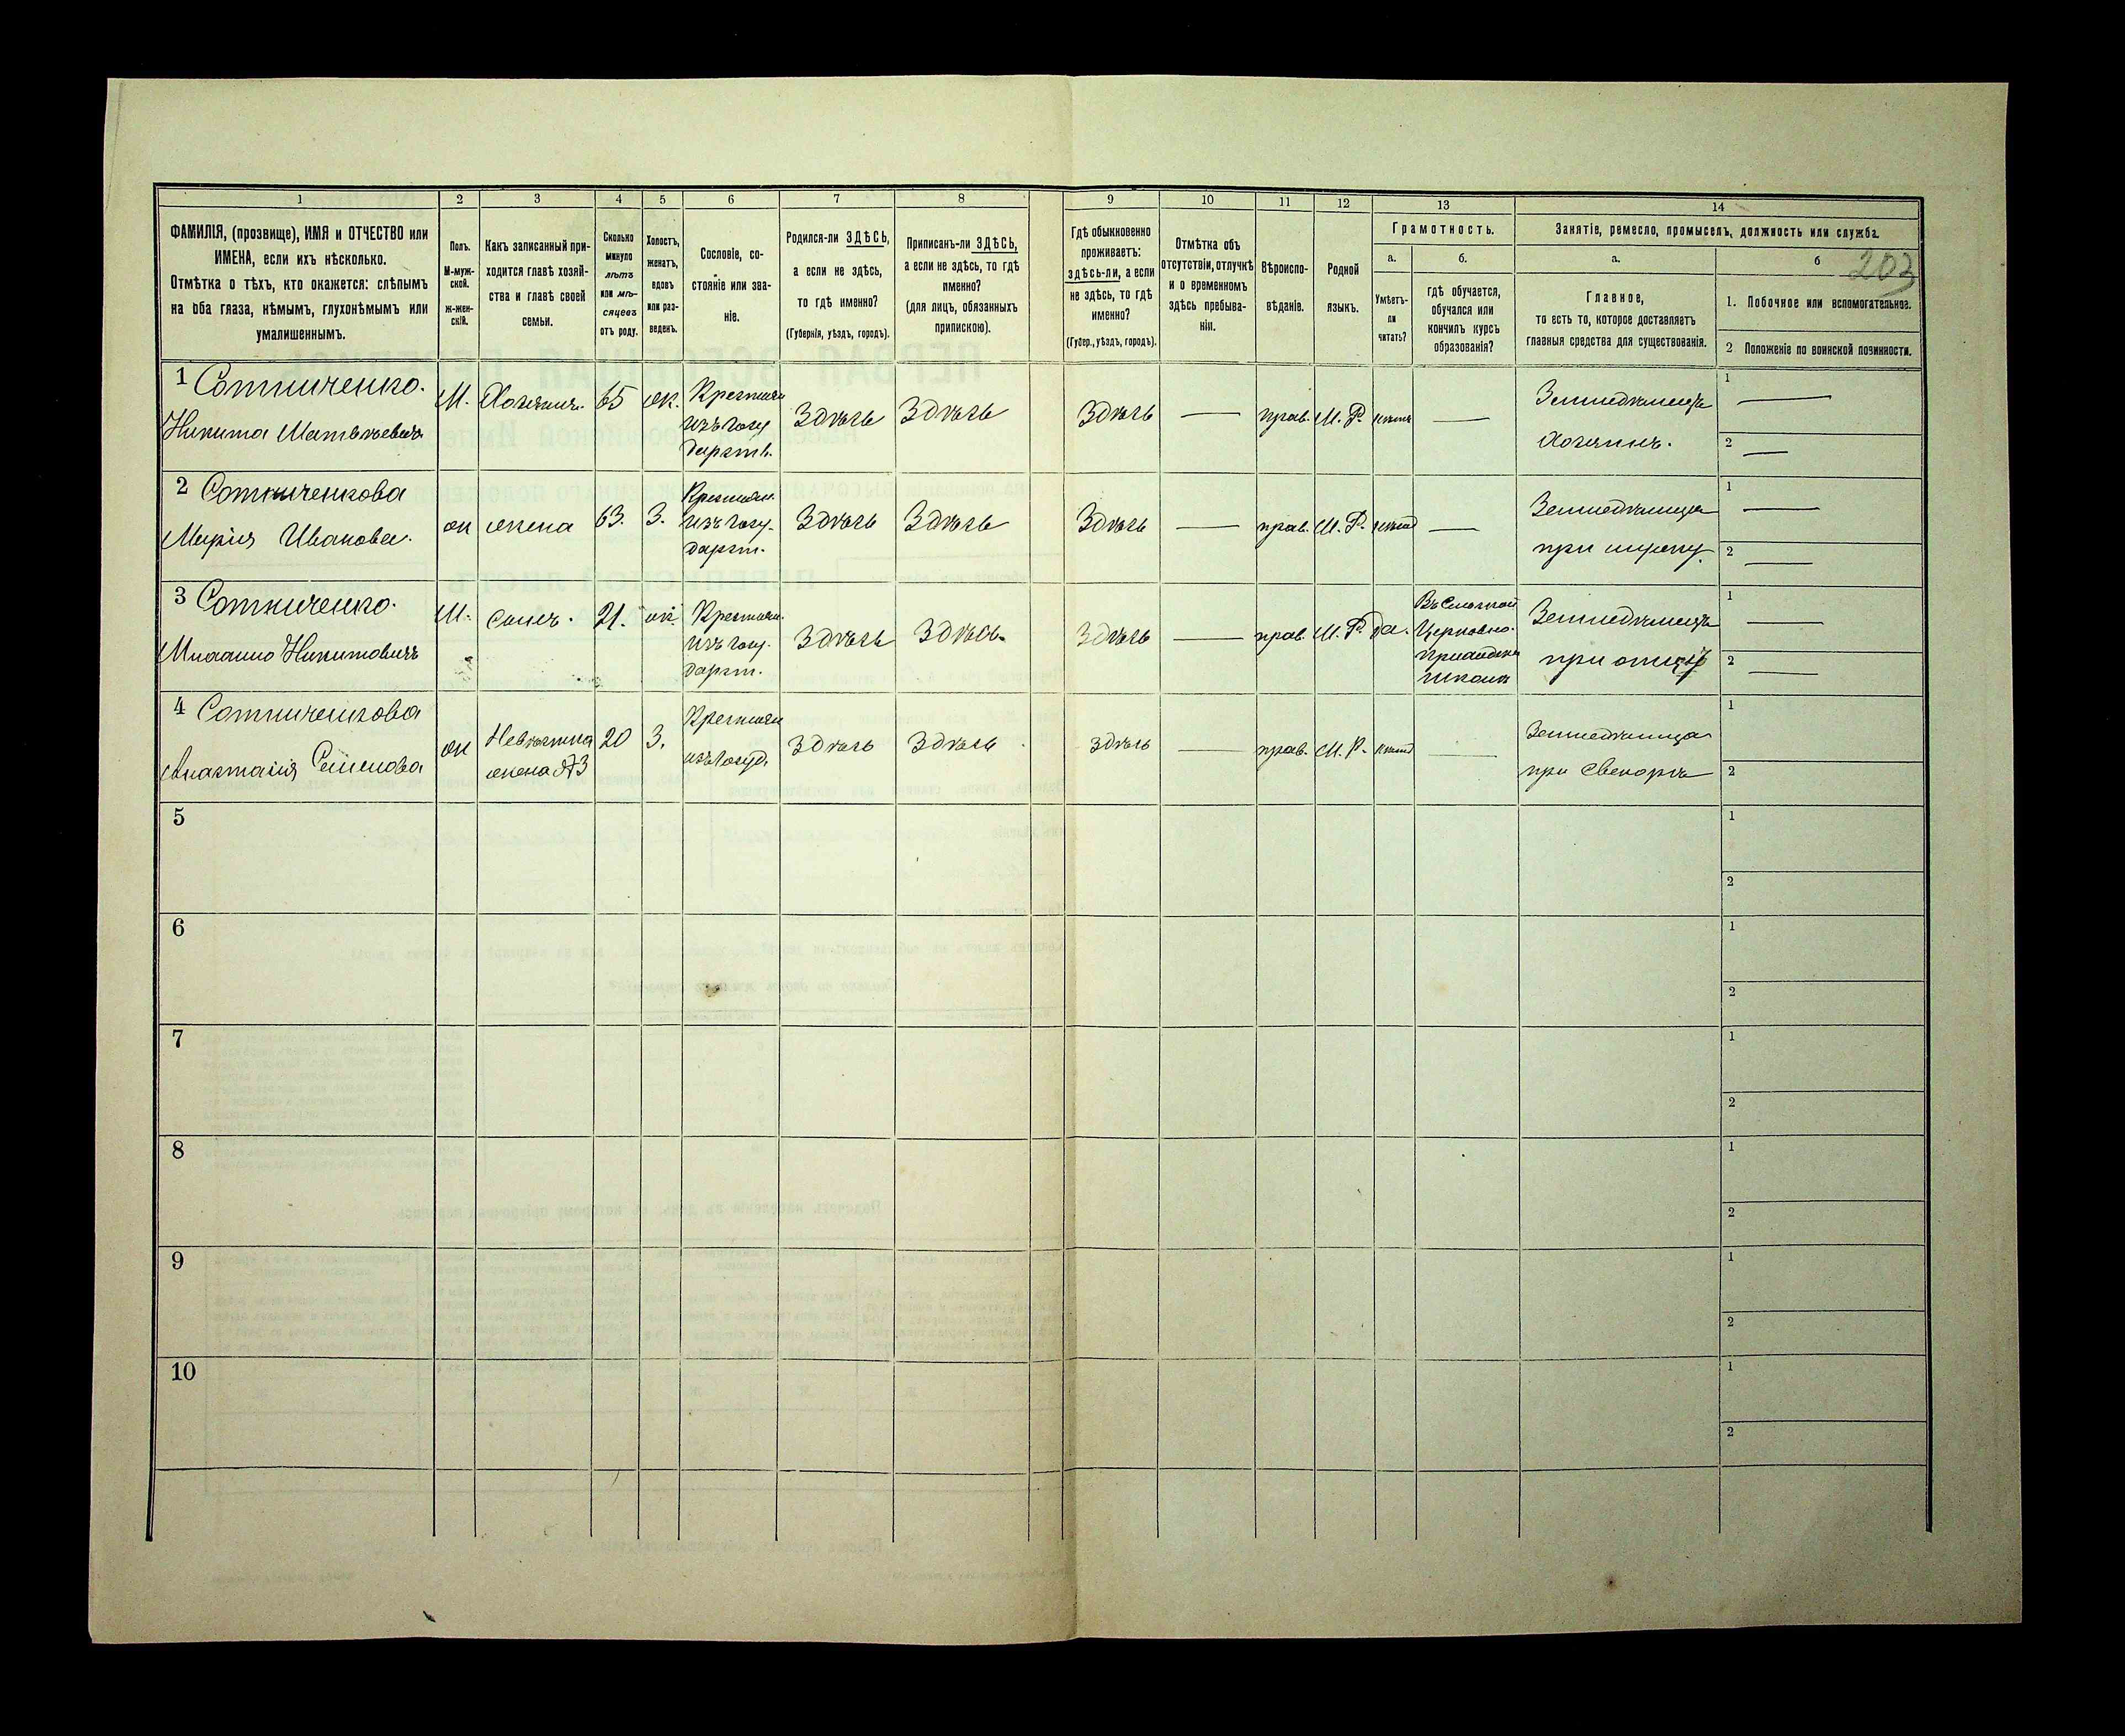 203
1
2
3
4
5
6
7
8
9
10
11
12
13
14
ФАМИЛІЯ, (прозвище), ИМЯ и ОТЧЕСТВО или
ИМЕНА, если ихъ нѣсколько.
Отмѣтка о тѣхъ, кто окажется: слѣпымъ
на оба глаза, нѣмымъ, глухонѣмымъ или
умалишеннымъ.
Полъ.
М-муж-
ской.
ж-жен-
скій.
Какъ записанный при-
ходится главѣ хозяй-
ства и главѣ своей
семьи.
Сколько
минуло
лѣтъ
или мѣ-
сяцевъ
отъ роду.
Холостъ,
женатъ,
вдовъ
или раз-
веденъ.
Сословіе, со-
стояніе или зва-
ніе.
Родился-ли ЗДѢСЬ,
а если не здѣсь,
то гдѣ именно?
(Губернія, уѣздъ, городъ).
Приписанъ-ли ЗДѢСЬ,
а если не здѣсь, то гдѣ
именно?
(для лицъ, обязанныхъ
припискою).
Гдѣ обыкновенно
проживаетъ:
здѣсь-ли, а если
не здѣсь, то гдѣ
именно?
(Губер., уѣздъ, городъ).
Отмѣтка объ
отсутствіи, отлучкѣ
и о временномъ
здѣсь пребыва-
ніи.
Вѣроиспо-
вѣданіе.
Родной
языкъ.
Грамотность.
а.
Умѣетъ-
ли
читать?
б.
гдѣ обучается,
обучался или
кончилъ курсъ
образованія?
Занятіе, ремесло, промыселъ, должность или служба.
а.
Главное,
то есть то, которое доставляетъ
главныя средства для существованія.
б
1. Побочное или вспомогательное.
2 Положеніе по воинской повинности.
1 Сотниченко.
Никита Матвѣевичъ
М.
Хозяинъ.
65
ж.
Крестьян
изъ Госу
дарств.
Здѣсь
Здѣсь
Здѣсь
—
прав.
М. Р.
—
Земледѣлецъ
Хозяинъ.
1 —
2 —
2 Сотниченкова
Марія Иванова.
ж
жена
63.
З.
Крестьян.
изъ Госу-
дарст.
Здѣсь
Здѣсь
Здѣсь
—
прав.
М. Р.
—
Земледѣлица
при мужу.
1 —
2 —
3 Сотниченко.
Никитовичъ
М.
Сынъ.
21.
ж
Крестьян.
изъ Госу-
дарст.
Здѣсь
Здѣсь.
Здѣсь
—
прав.
М. Р.
да.
Церковно-
школѣ
Земледѣлецъ
при отцѣ
1 —
2 —
4 Сотниченкова
Анастасія Семенова
ж
Невѣстка
жена №3
20
З.
Крестьян
изъ Госуд.
Здѣсь
Здѣсь
здѣсь
—
прав.
М. Р.
—
Земледѣлица
при Свекорѣ
1
2
5
1
2
6
1
2
7
1
2
8
1
2
9
1
2
10
1
2